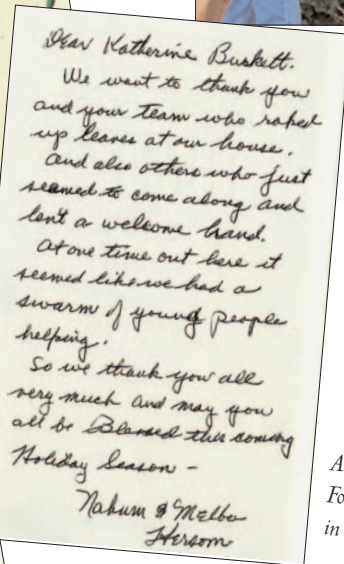 Dear Katherine Burkett.
We want to thank you
and your team who raked
up leaves at our house.
and also others who just
seemed to come along and
lent a welcome hand.
At one time out here it
seemed like we had a
swarm of young people
helping.
So we thank you all
very much and may you
all be Blessed this coming
Holiday Season –
Nahum & Melba
Hersom
A
Fo
in